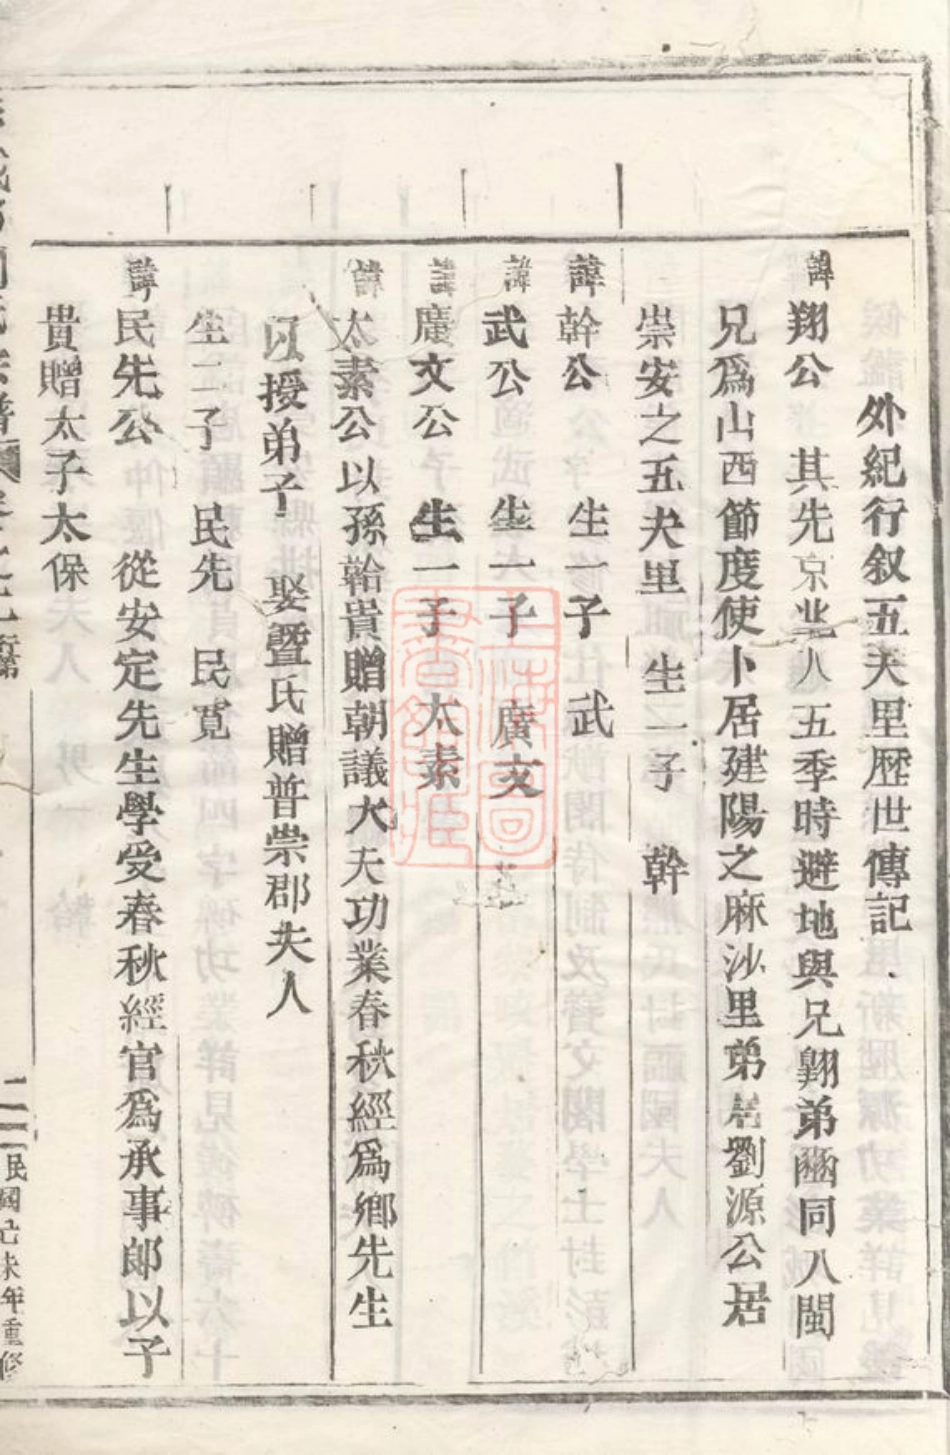 外紀行叙五夫里歷世傳記
諱翔公 其先京兆人五季時避地與兄翺弟豳同入閩
兄爲山西節度使卜居建陽之麻沙里弟居劉源公居
崇安之五夫里 生一子 幹
諱幹公 生一子 武
諱武公 生一子 廣文
諱廣文公 生一子 太素
諱太素公以孫韐貴贈朝議大夫功業春秋經爲鄉先生
以授弟子 娶暨氏贈普崇郡夫人
生二子 民先 民寬
諱民先公 從安定先生學受春秋經官爲承事郎以子
貴贈太子太保
民國己未年重修